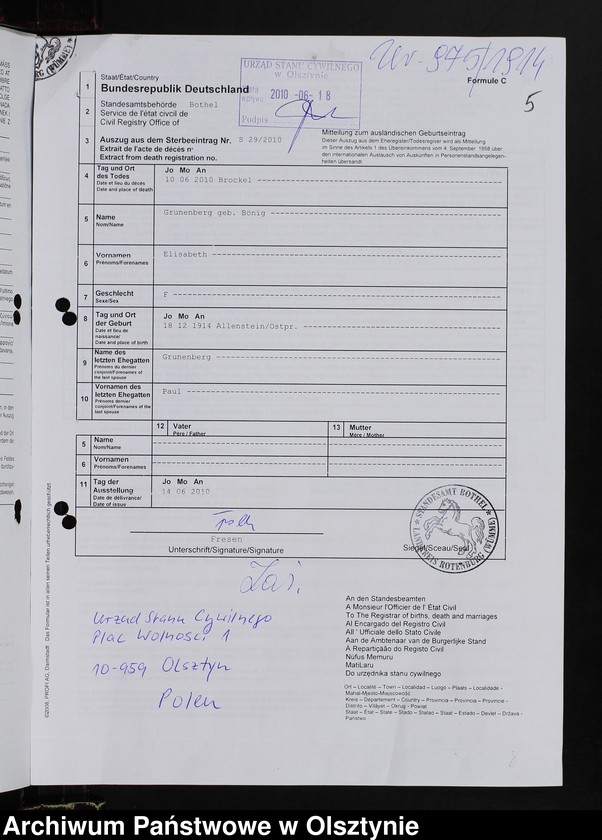 Ur-975/1914
5
URZĄD STANU CYWILNEGO
w Olsztynie
wpływu 2010 -06- 18
Podpis
Formule C
1 Staat/État/Country
Bundesrepublik Deutschland
2 Standesamtsbehörde Bothel
Service de l'état civil de
Civil Registry Office of
3 Auszug aus dem Sterbeeintrag Nr. S 29/2010
Extrait de l'acte de décès n°
Extract from death registration no.
Mitteilung zum ausländischen Geburtseintrag
Dieser Auszug aus dem Eheregister/Todesregister wird als Mitteilung
im Sinne des Artikels 1 des Übereinkommens vom 4. September 1958 über
den internationalen Austausch von Auskünften in Personenstandsangelegen-
heiten übersandt.
4 Tag und Ort
des Todes
Date et lieu du décès
Date and place of death
Jo Mo An
10 06 2010 Brockel
5 Name
Nom/Name
Grunenberg geb. Bönig
6 Vornamen
Prénoms/Forenames
Elisabeth
7 Geschlecht
Sexe/Sex
F
8 Tag und Ort
der Geburt
Date et lieu de
naissance/
Date and place of birth
Jo Mo An
18 12 1914 Allenstein/Ostpr.
9 Name des
letzten Ehegatten
Prénoms du dernier
conjoint/Forenames of the
last spouse
Grunenberg
10 Vornamen des
letzten Ehegatten
Prénoms dernier
conjoint/Forenames of the
last spouse
Paul
12 Vater
Père / Father
13 Mutter
Mère / Mother
5 Name
Nom/Name
6 Vornamen
Prénoms/Forenames
11 Tag der
Ausstellung
Date de délivrance/
Date of issue
Jo Mo An
14 06 2010
Frezen
Unterschrift/Signature/Signature
Siegel/Sceau/Seal
STANDESAMT BOTHEL
LANDKREIS ROTENBURG (WÜMME)
Urząd Stanu Cywilnego
Plac Wolności 1
10-959 Olsztyn
Polen
An den Standesbeamten
A Monsieur l'Officier de l' État Civil
To The Registrar of births, death and marriages
Al Encargado del Registro Civil
All ' Ufficiale dello Stato Civile
Aan de Ambtenaar van de Burgerlijke Stand
A Repartição do Registo Civil
Nüfus Memuru
MatiLaru
Do urzędnika stanu cywilnego
Ort – Localité – Town – Localidad – Luogo – Plaats – Localidade -
Mahal-Mjesto-Miejscowość
Kreis – Département – Country – Provincia – Provincia – Provincie -
Distrito – Vilâyet – Okrug - Powiat
Staat – État – State – Stado – Statao – Staat – Estado – Devlet – Država -
Państwo
©2008, PROFI AG, Darmstadt Das Formular ist in allen seinen Teilen urheberrechtlich geschützt
Archiwum Państwowe w Olsztynie